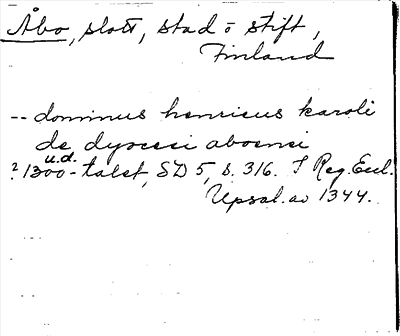 Åbo, slott, stad o stift,
Finland
-- dominus henricus karoli
de dyocesi aboensi
u.d.
? 1300-talet, SD 5, s. 316. I Reg. Eccl.
Upsal. av 1344.